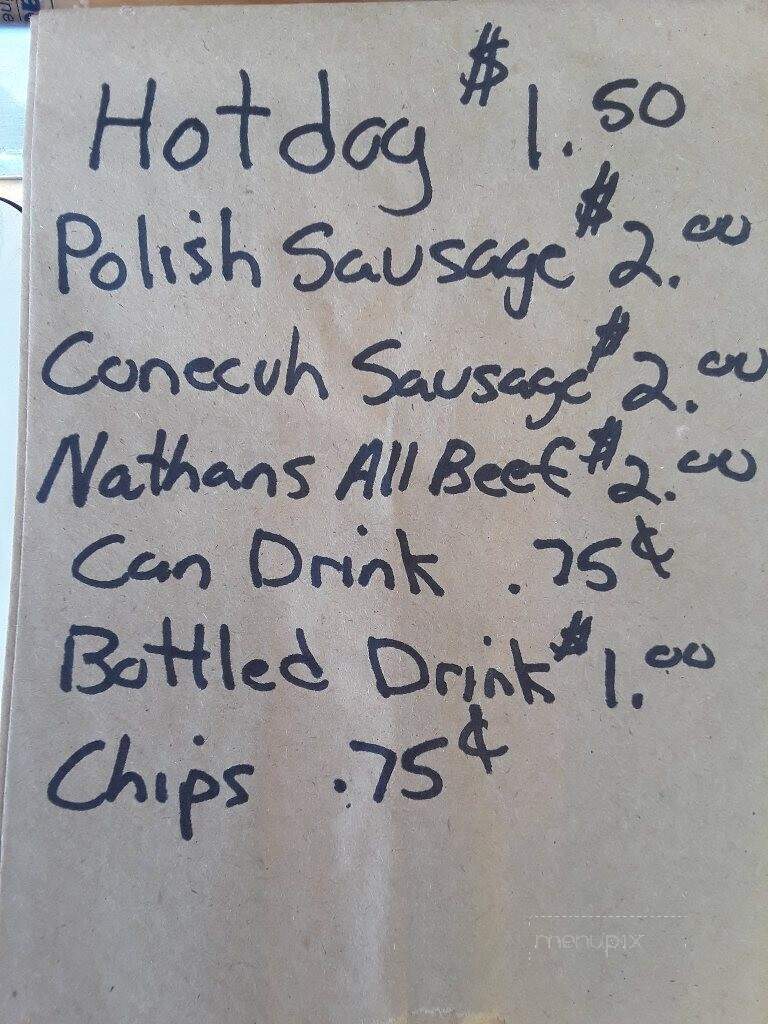 Hotdog $1.50
Polish Sausage $2.00
Conecuh Sausage $2.00
Nathans All Beef $2.00
Can Drink .75¢
Bottled Drink $1.00
Chips .75¢
menupix